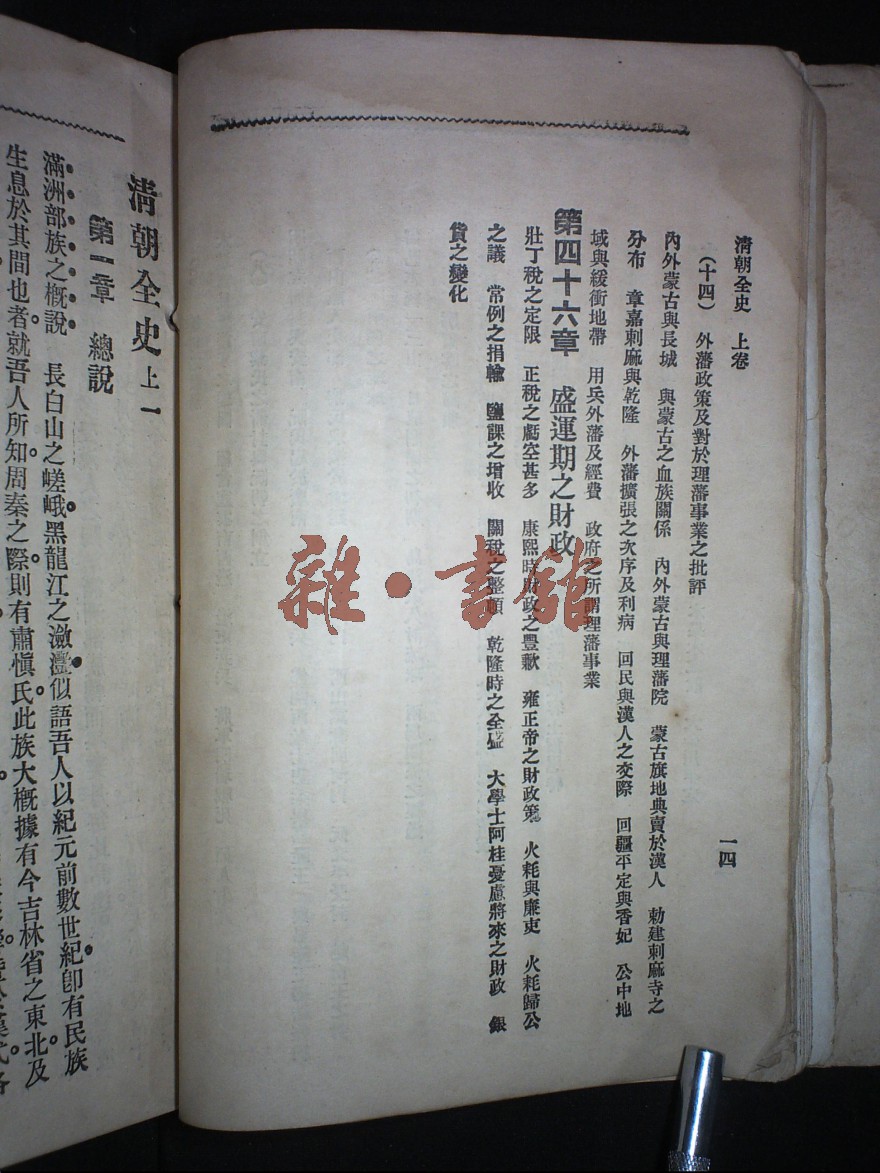 清朝全史 上卷
一四
(十四) 外藩政策及對於理藩事業之批評
內外蒙古與長城 與蒙古之血族關係 內外蒙古與理藩院 蒙古旗地典賣於漢人 勅建剌麻寺之
分布 章嘉剌麻與乾隆 外藩擴張之次序及利病 回民與漢人之交際 回疆平定與香妃 公中地
域與緩衝地帶 用兵外藩及經費 政府之所謂理藩事業
第四十六章 盛運期之財政
壯丁稅之定限 正稅之虧空甚多 康熙時財政之豐歉 雍正帝之財政策 火耗與廉吏 火耗歸公
之議 常例之捐輸 鹽課之增收 關稅之整頓 乾隆時之全盛 大學士阿桂憂慮將來之財政 銀
貨之變化
雜·書館
清朝全史 上一
第一章 總說
滿洲部族之概說 長白山之嵯峨黑龍江之瀲灩似語吾人以紀元前數世紀卽有民族
生息於其間也者就吾人所知周秦之際則有肅愼氏此族大概據有今吉林省之東北及